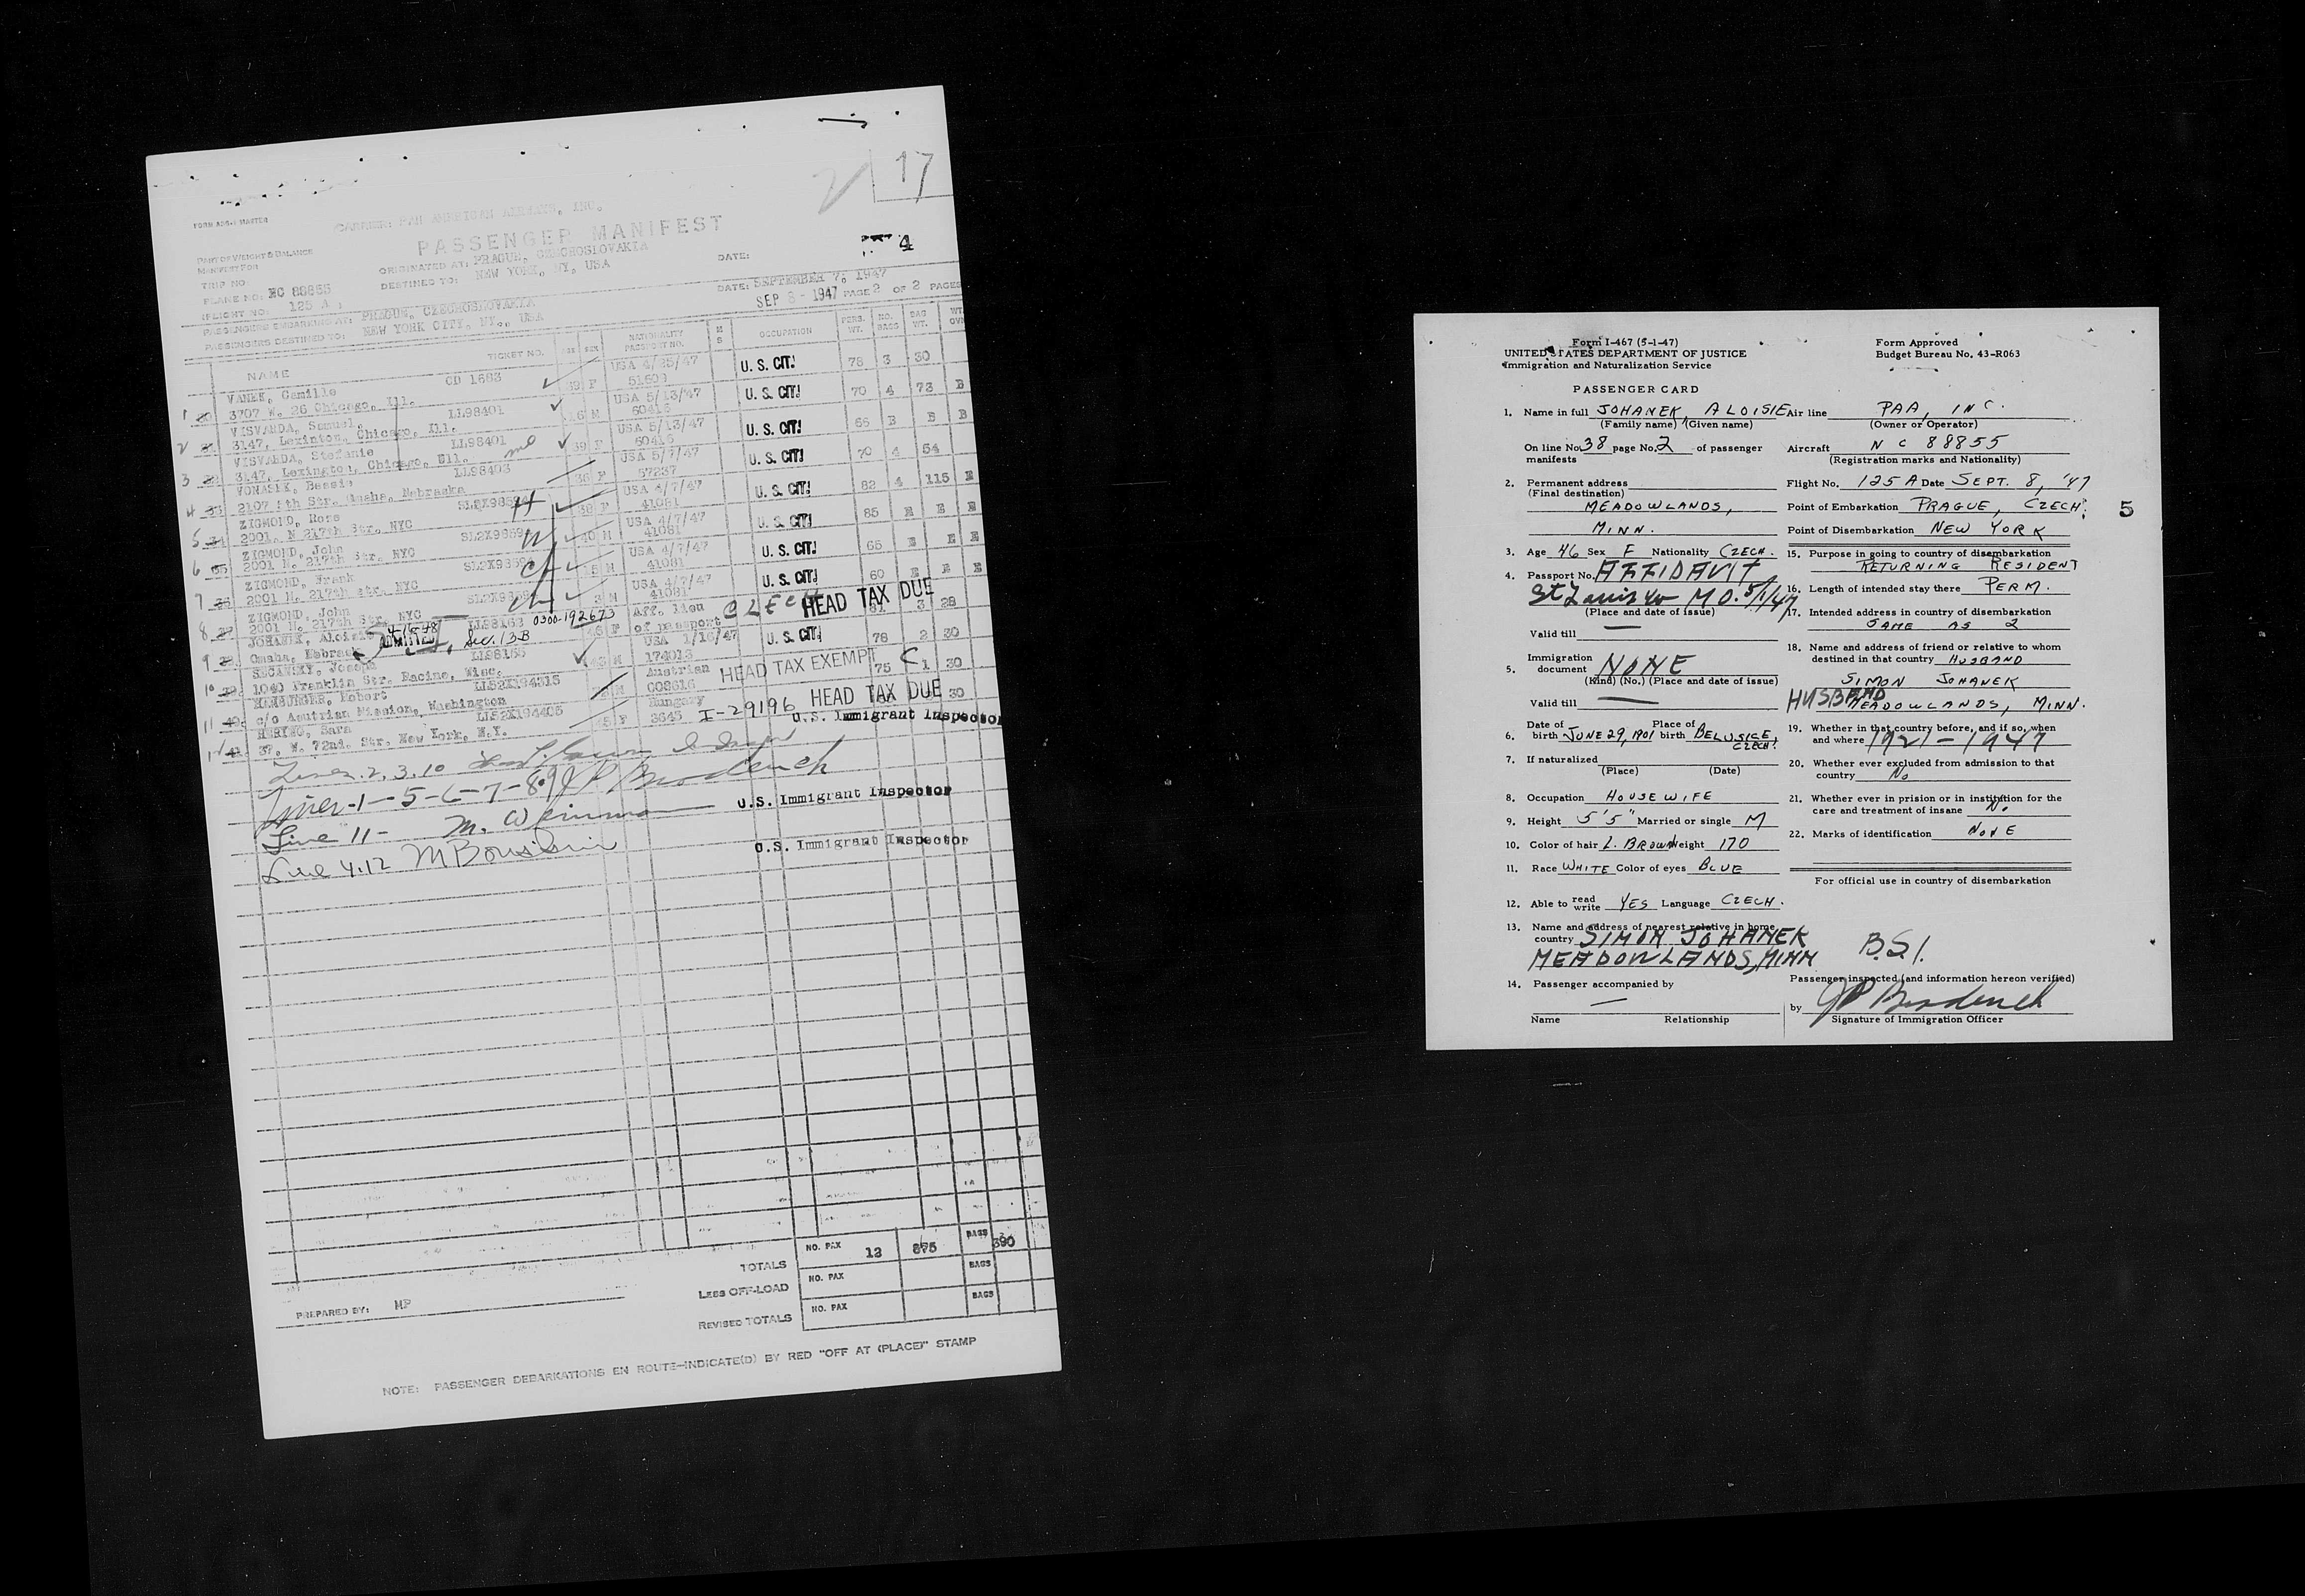 17
FORM ADS-4 MASTER
CARRIER: PAN AMERICAN AIRWAYS, INC.
PASSENGER MANIFEST
4
PART OF WEIGHT & BALANCE
MANIFEST FOR
ORIGINATED AT: PRAGUE, CZECHOSLOVAKIA
DATE:
TRIP NO.
DESTINED TO: NEW YORK, NY, USA
PLANE NO: NC 88855
DATE: SEPTEMBER 7, 1947
FLIGHT NO: 125 A
SEP 8 - 1947 PAGE 2 OF 2 PAGES
PASSENGERS EMBARKING AT: PRAGUE, CZECHOSLOVAKIA
PASSENGERS DESTINED TO: NEW YORK CITY, NY., USA
NAME TICKET NO. AGE SEX NATIONALITY PASSPORT NO. M S OCCUPATION PERS. WT. NO. BAGS BAG WT. WT. OVR
1 30 VANEK, Camille CD 1683 39 F USA 4/25/47 51609 U. S. CIT. 78 3 30
3707 W. 26 Chicago, Ill.
2 31 VISVARDA, Samuel, LL98401 16 M USA 5/13/47 60416 U. S. CIT. 70 4 73 E
3147, Lexinton, Chicago, Ill.
3 32 VISVARDA, Stefanie LL98401 39 F USA 5/13/47 60416 U. S. CIT. 65 E E E
3147, Lexington, Chicago, Ill.
4 33 VONASEK, Bessie LL98403 36 F USA 5/7/47 57237 U. S. CIT. 70 4 54
2107 5th Str. Omaha, Nebraska
5 34 ZIGMOND, Rose SL2X9859 38 F USA 4/7/47 41081 U. S. CIT. 82 4 115 E
2001, N 217th Str. NYC
6 35 ZIGMOND, John SL2X9859 40 M USA 4/7/47 41081 U. S. CIT. 85 E E E
2001 N. 217th Str. NYC
7 36 ZIGMOND, Frank SL2X9859 15 M USA 4/7/47 41081 U. S. CIT. 65 E E E
2001 N. 217th str. NYC
8 37 ZIGMOND, John SL2X9859 3 M USA 4/7/47 41081 U. S. CIT. 60 E E E
2001 N. 217th Str. NYC
9 38. JOHANEK, Aloisie LL98163 0300-192673 46 F Aff. lieu of passport CZECH HEAD TAX DUE 81 3 28
Omaha, Nebrask ADMITTED, Sec. 13-B
10 39. SECANSKY, Joseph LL98165 43 M USA 1/16/47 174013 U. S. CIT. 78 2 30
1040 Franklin Str. Racine, Wisc.
11 40. HAMBURGER, Robert LL52X194315 M Austrian 008616 HEAD TAX EXEMPT C 75 1 30
c/o Asutrian Mission, Washington
41. Sara LL52X194405 F Hungary 3645 I-29196 HEAD TAX DUE 30
37, W. 72nd. Str. New York, N.Y.
U.S. Immigrant Inspector
Lines. 2, 3, 10
Lines-1-5-6-7-8-9 J P Brodench
Line 11- U.S. Immigrant Inspector
Line 4.12 U.S. Immigrant Inspector
TOTALS NO. PAX 12 875 BAGS 390
LESS OFF-LOAD NO. PAX BAGS
REVISED TOTALS NO. PAX BAGS
PREPARED BY: MP
NOTE: PASSENGER DEBARKATIONS EN ROUTE-INDICATE(D) BY RED "OFF AT (PLACE)" STAMP
Form I-467 (5-1-47)
UNITED STATES DEPARTMENT OF JUSTICE
Immigration and Naturalization Service
Form Approved
Budget Bureau No. 43-R063
PASSENGER CARD
1. Name in full JOHANEK, ALOISIE
(Family name) (Given name)
On line No. 38 page No. 2 of passenger
manifests
2. Permanent address
(Final destination)
MEADOWLANDS,
MINN.
3. Age 46 Sex F Nationality CZECH.
4. Passport No. AFFIDAVIT
St Louis Co MO. 5/1/47
(Place and date of issue)
Valid till
5. Immigration
document NONE
(Kind) (No.) (Place and date of issue)
Valid till
6. Date of birth JUNE 29, 1901 Place of birth BELUSICE, CZECH.
7. If naturalized
(Place) (Date)
8. Occupation HOUSEWIFE
9. Height 5'5" Married or single M
10. Color of hair L. BROWN Weight 170
11. Race WHITE Color of eyes BLUE
12. Able to read write YES Language CZECH.
13. Name and address of nearest relative in home
country SIMON JOHANEK
MEADOWLANDS, MINN
14. Passenger accompanied by
Name Relationship
Air line PAA, INC.
(Owner or Operator)
Aircraft N C 88855
(Registration marks and Nationality)
Flight No. 125 A Date SEPT. 8, '47
Point of Embarkation PRAGUE, CZECH. 5
Point of Disembarkation NEW YORK
15. Purpose in going to country of disembarkation
RETURNING RESIDENT
16. Length of intended stay there PERM.
17. Intended address in country of disembarkation
SAME AS 2
18. Name and address of friend or relative to whom
destined in that country HUSBAND
SIMON JOHANEK
HUSBAND MEADOWLANDS, MINN.
19. Whether in that country before, and if so, when
and where 1921-1947
20. Whether ever excluded from admission to that
country No
21. Whether ever in prision or in institution for the
care and treatment of insane No
22. Marks of identification NONE
For official use in country of disembarkation
B.S.I.
Passenger inspected (and information hereon verified)
by J P Brodench
Signature of Immigration Officer